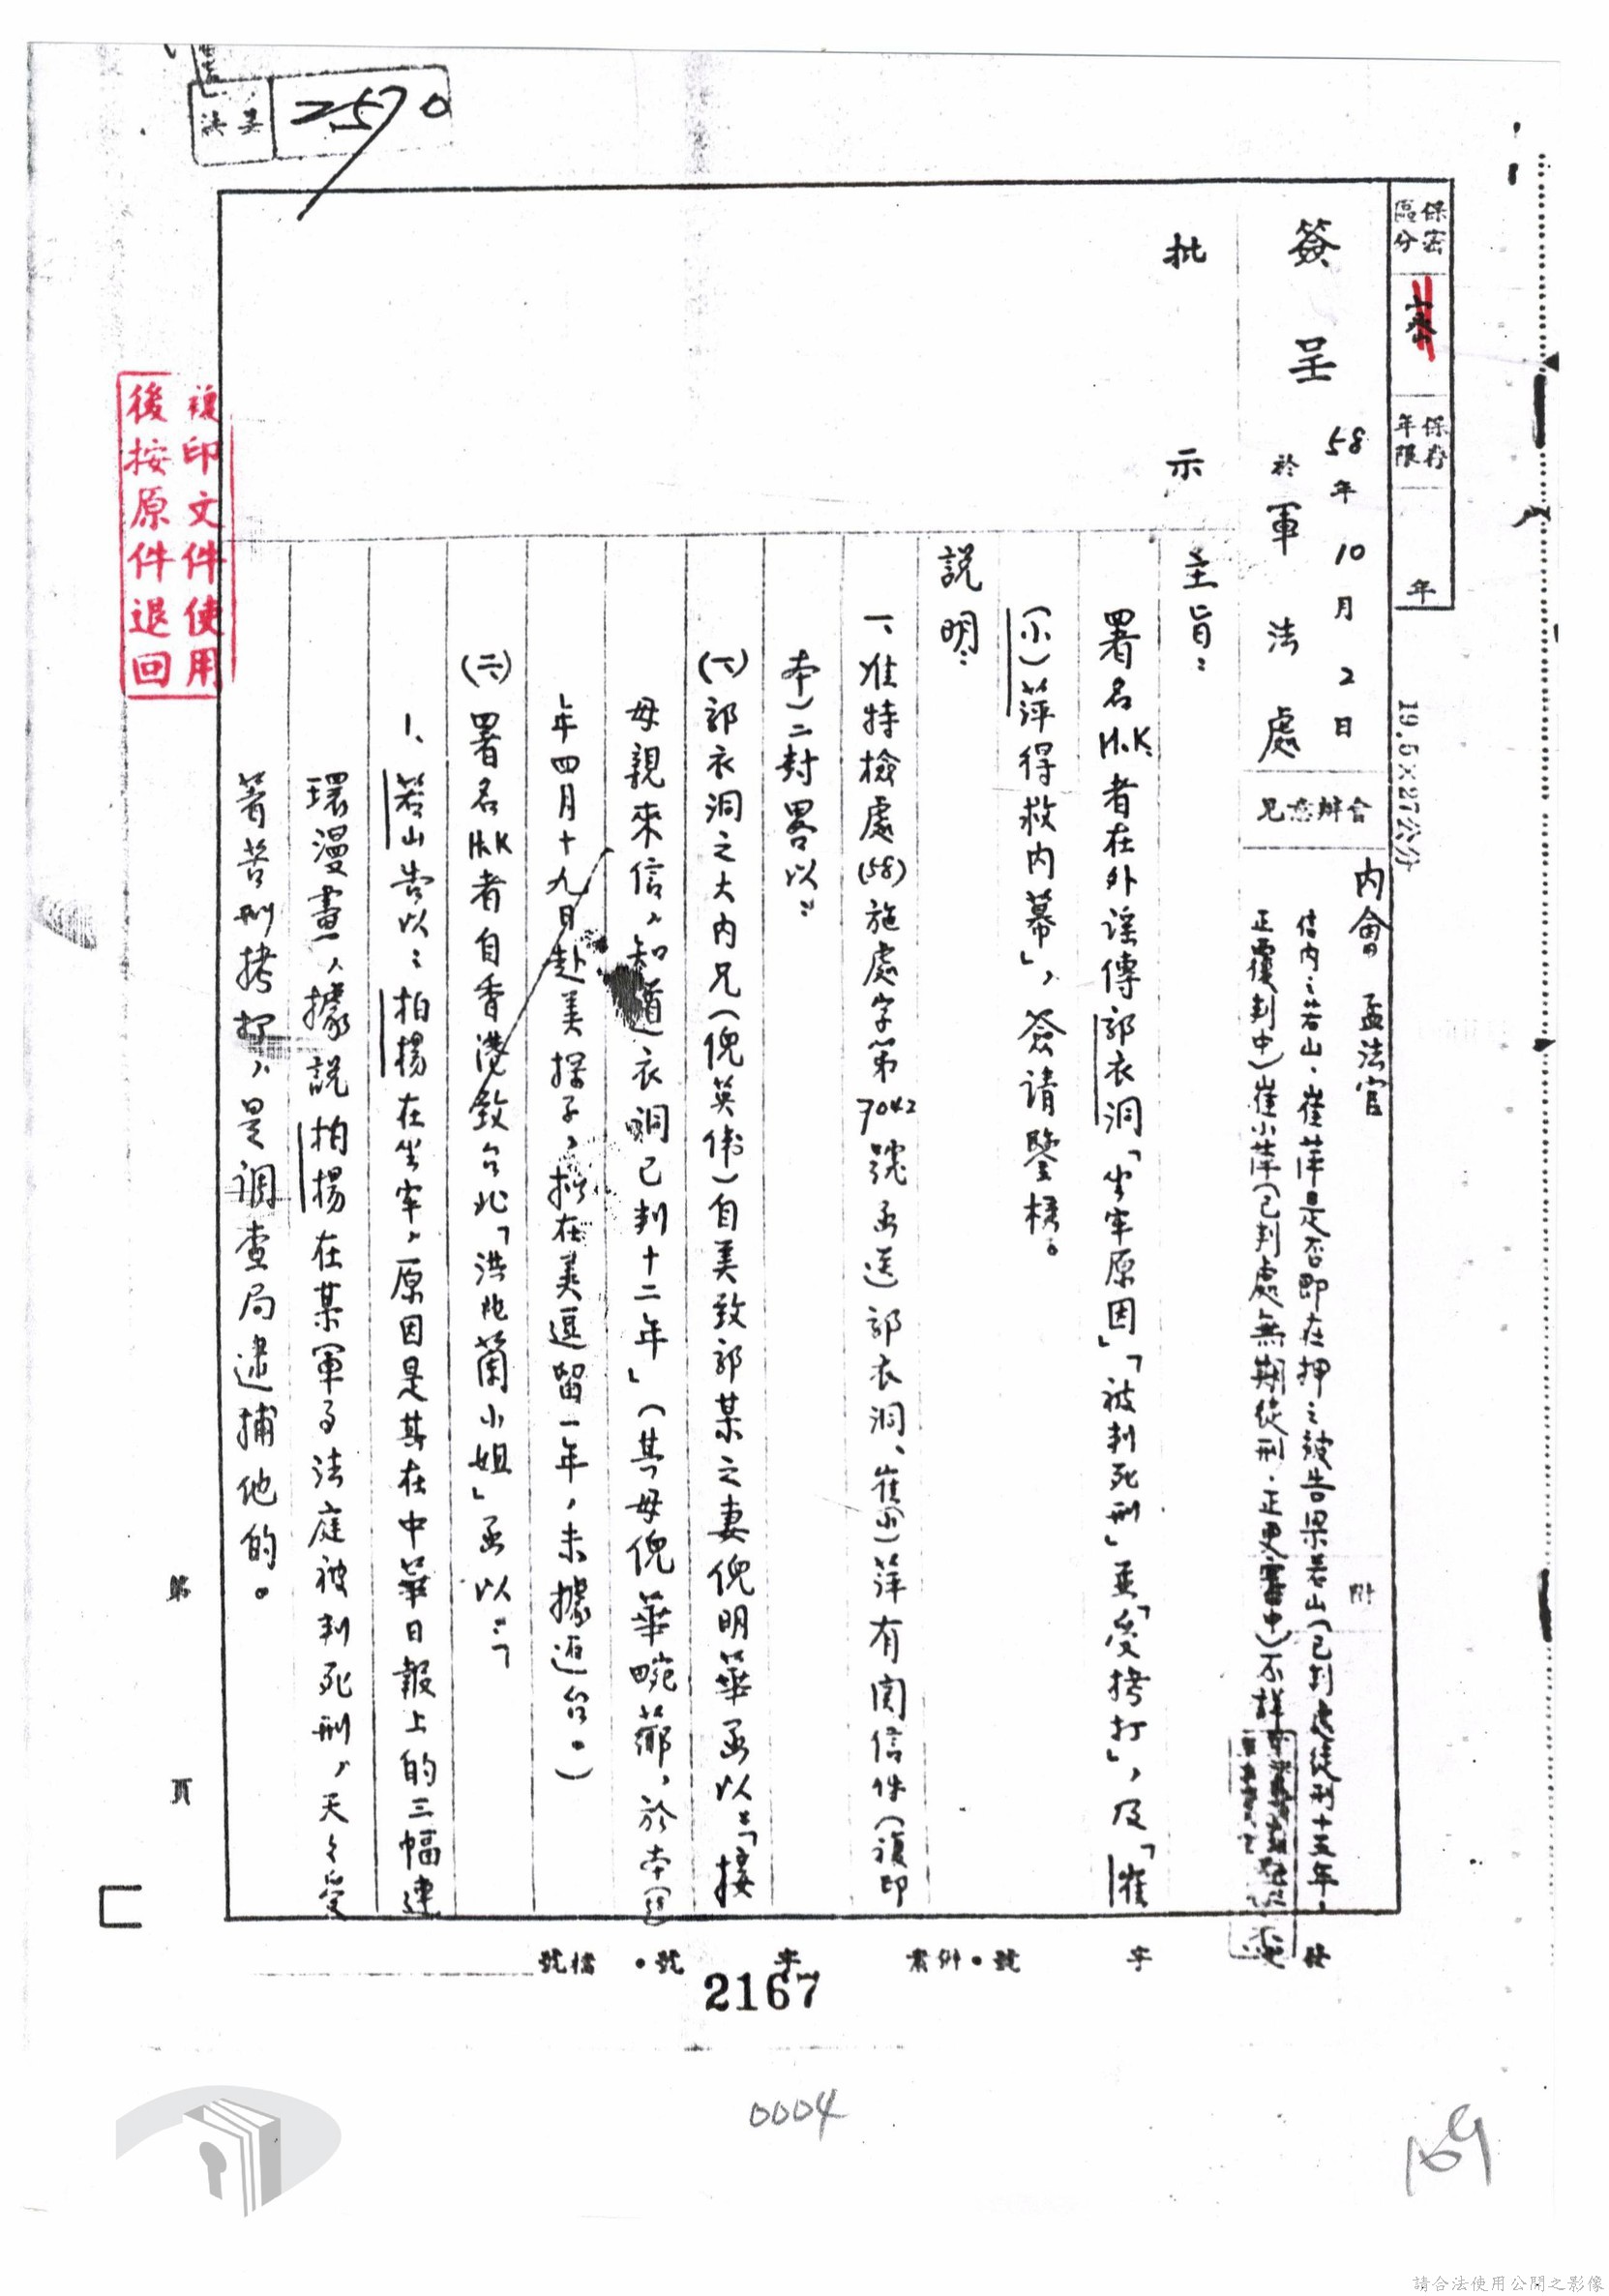 2570
保密區分
密
保存年限
年
19.5×27公分
簽呈
58年10月2日
於軍法處
會辦意見
內會 孟法官
信內:若山、崔萍是否即在押之被告梁若山(已判處徒刑十五年,
正覆判中)崔小萍(已判處無期徒刑,正更審中)不詳
附
批示
主旨:
署名H.K.者在外謠傳郭衣洞「坐牢原因」「被判死刑」並「受拷打」,及「崔
(小)萍得救內幕」,簽請鑒核。
說明:
一、准特檢處(58)施處字第7042號函送郭衣洞、崔(小)萍有関信件(複印
本)二封畧以:
(一)郭衣洞之大內兄(倪英偉)自美致郭某之妻倪明華函以:「接
母親來信,知道衣洞已判十二年」(其母倪華畹薌,於本(58)
年四月十九日赴美探子,擬在美逗留一年,未據返台。)
(二)署名H.K者自香港致台北「洪兆蘭小姐」函以:「
1、若山告以:柏楊在坐牢,原因是其在中華日報上的三幅連
環漫畫,據說柏楊在某軍事法庭被判死刑,天々受
著苦刑拷打,是調查局逮捕他的。
複印文件使用
後按原件退回
第 頁
檔號
號
字
案件
號
字
2167
0004
169
請合法使用公開之影像